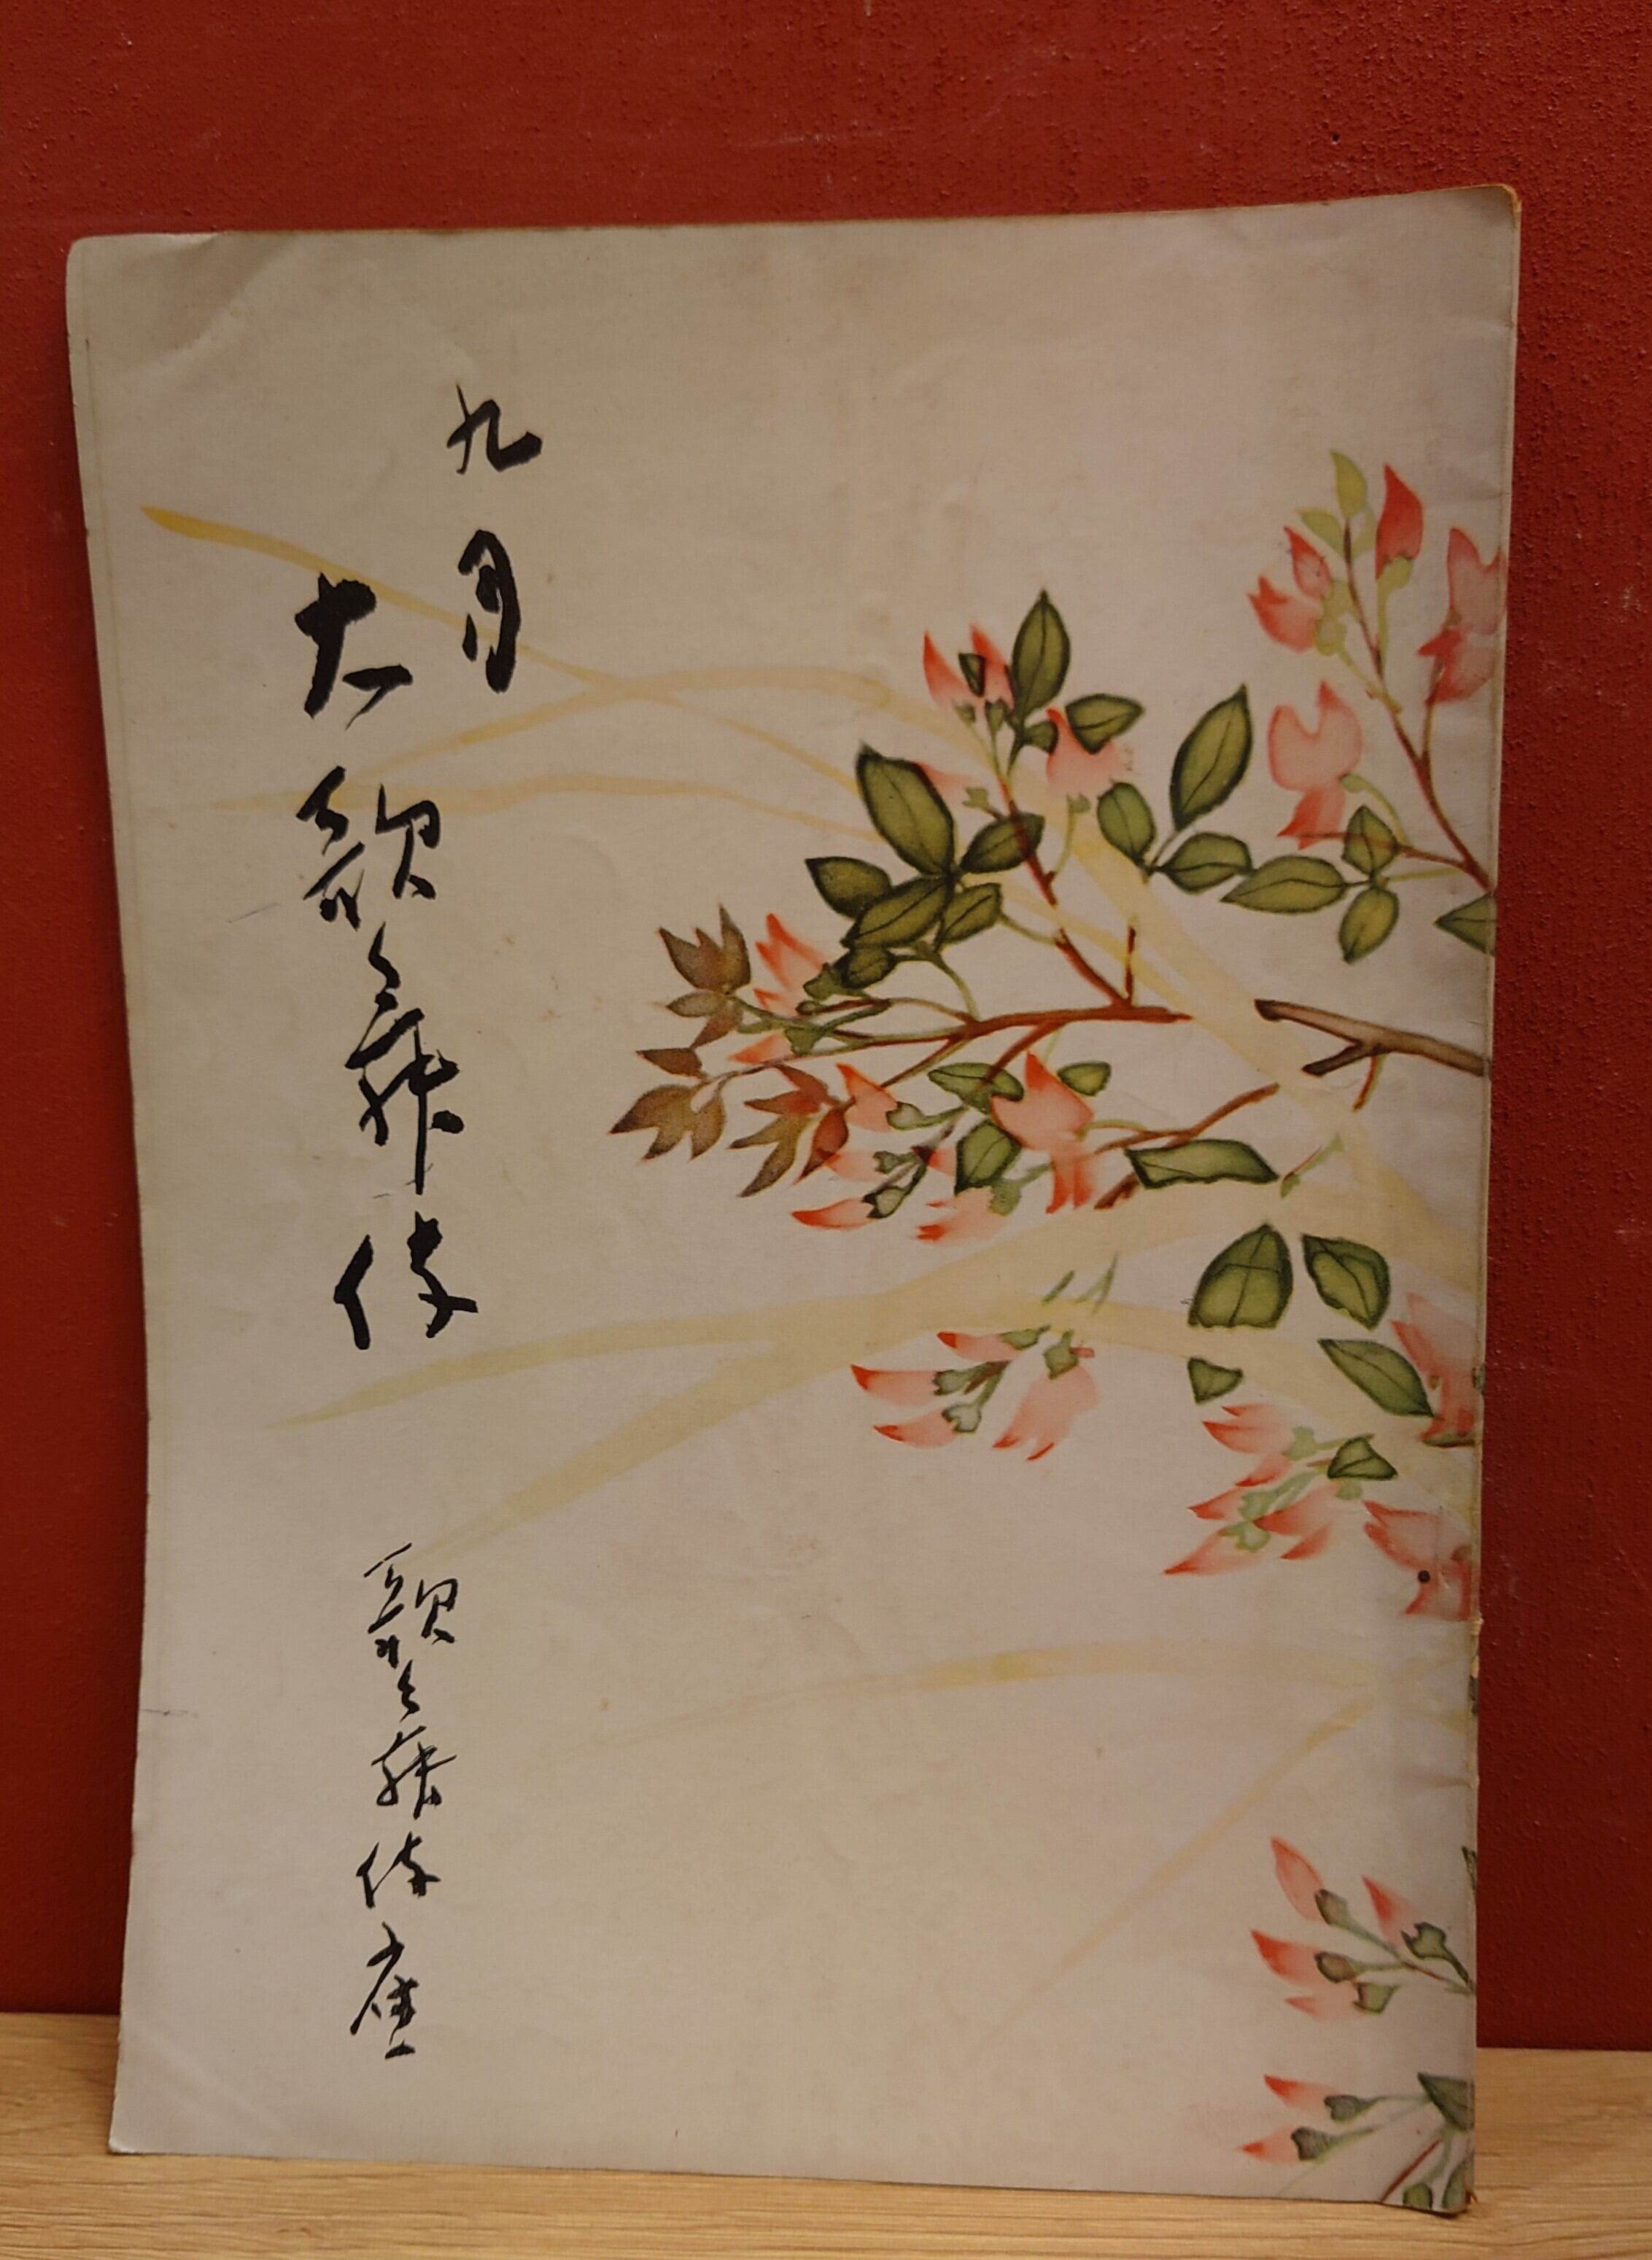 九月
大歌舞伎
歌舞伎座